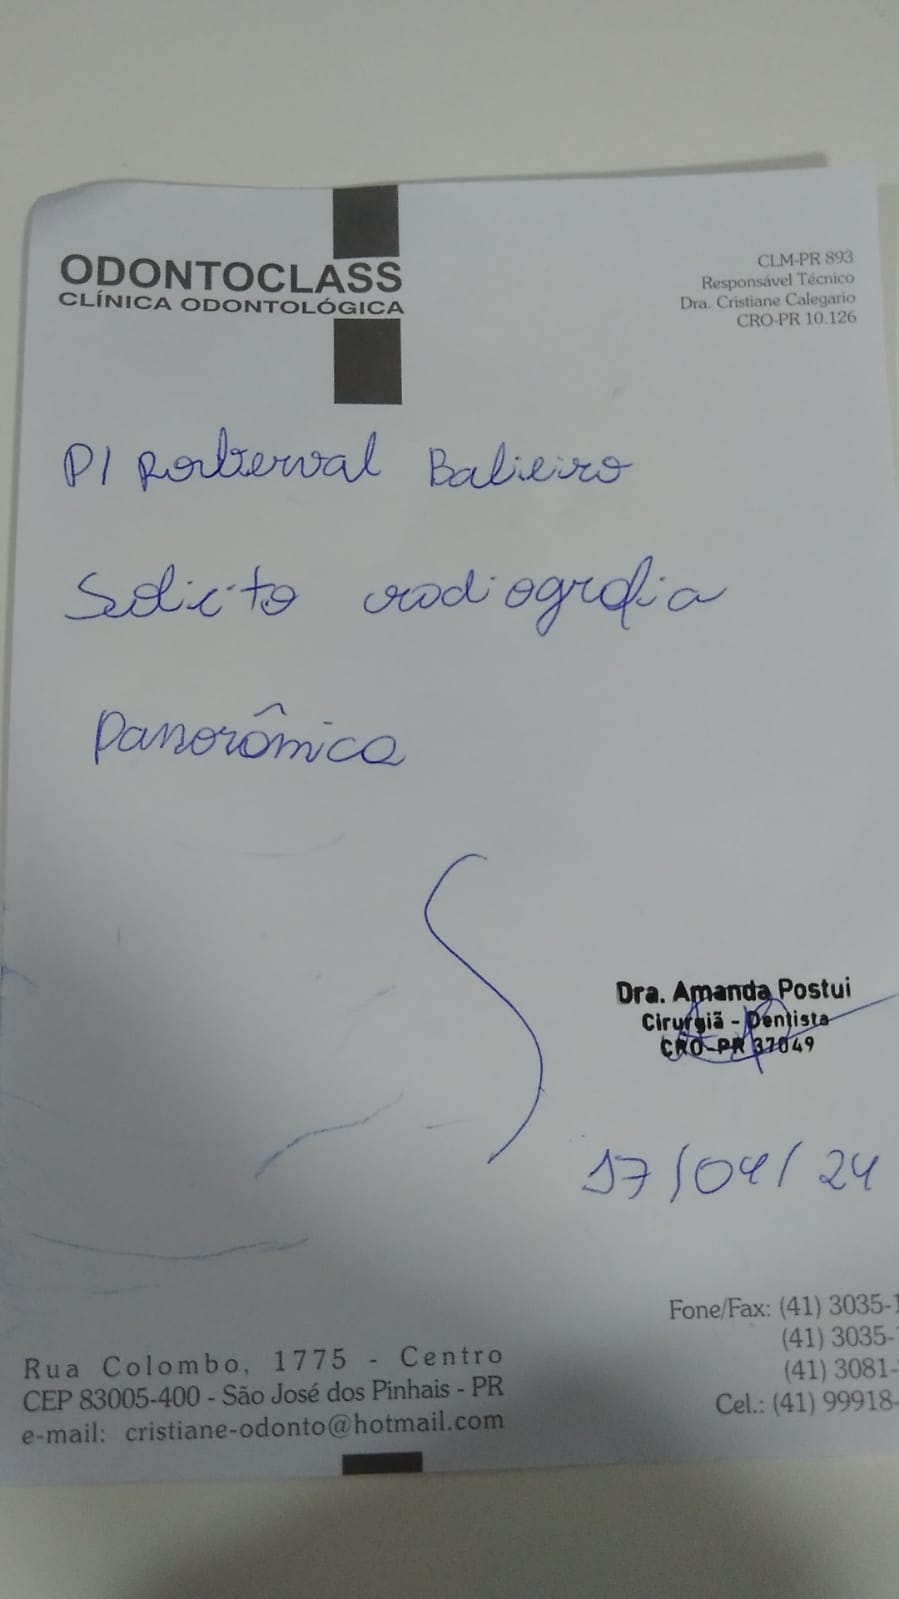 ODONTOCLASS
CLÍNICA ODONTOLÓGICA
CLM-PR 893
Responsável Técnico
Dra. Cristiane Calegario
CRO-PR 10.126
P/ Roberval Balieiro
Solicito radiografia
Panorâmica
Dra. Amanda Postui
Cirurgiã - Dentista
CRO-PR 37049
17/04/24
Rua Colombo, 1775 - Centro
CEP 83005-400 - São José dos Pinhais - PR
e-mail: cristiane-odonto@hotmail.com
Fone/Fax: (41) 3035-1
(41) 3035-
(41) 3081-
Cel.: (41) 99918-